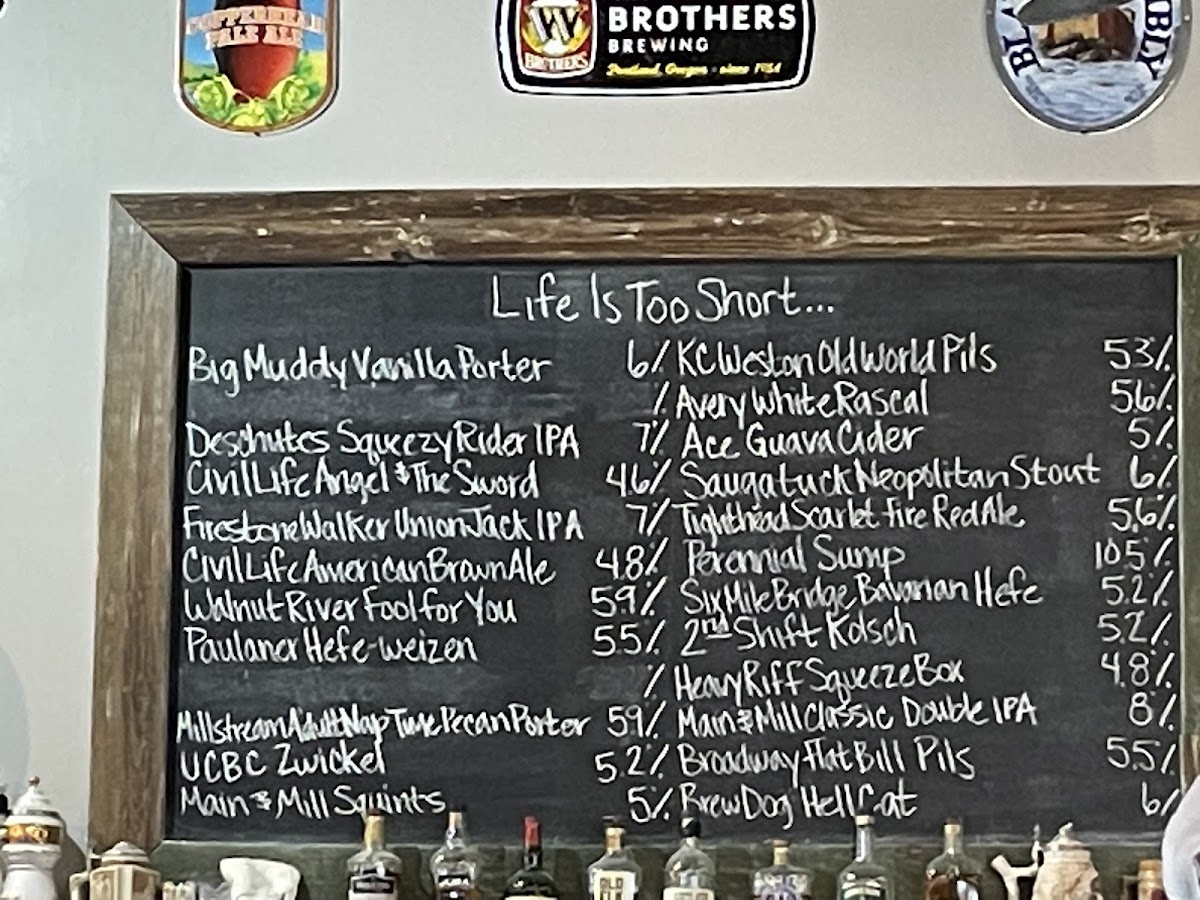 COPPERHEAD
PALE ALE
W
BROTHERS
BROTHERS
BREWING
Portland, Oregon - since 1984
BLA
UBLY
Life Is Too Short...
Big Muddy Vanilla Porter 6%
%
Deschutes Squeezy Rider IPA 7%
Civil Life Angel & The Sword 4.6%
Firestone Walker Union Jack IPA 7%
Civil Life American Brown Ale 4.8%
Walnut River Fool for You 5.9%
Paulaner Hefe-weizen 5.5%
%
Millstream Adult Nap Time Pecan Porter 5.9%
UCBC Zwickel 5.2%
Main & Mill Squints 5%
KC Weston Old World Pils 5.3%
Avery White Rascal 5.6%
Ace Guava Cider 5%
Saugatuck Neopolitan Stout 6%
Tighthead Scarlet Fire Red Ale 5.6%
Perennial Sump 10.5%
Six Mile Bridge Bavarian Hefe 5.2%
2nd Shift Kolsch 5.2%
Heavy Riff Squeeze Box 4.8%
Main & Mill Classic Double IPA 8%
Broadway Flat Bill Pils 5.5%
BrewDog Hell Cat 6%
OLD